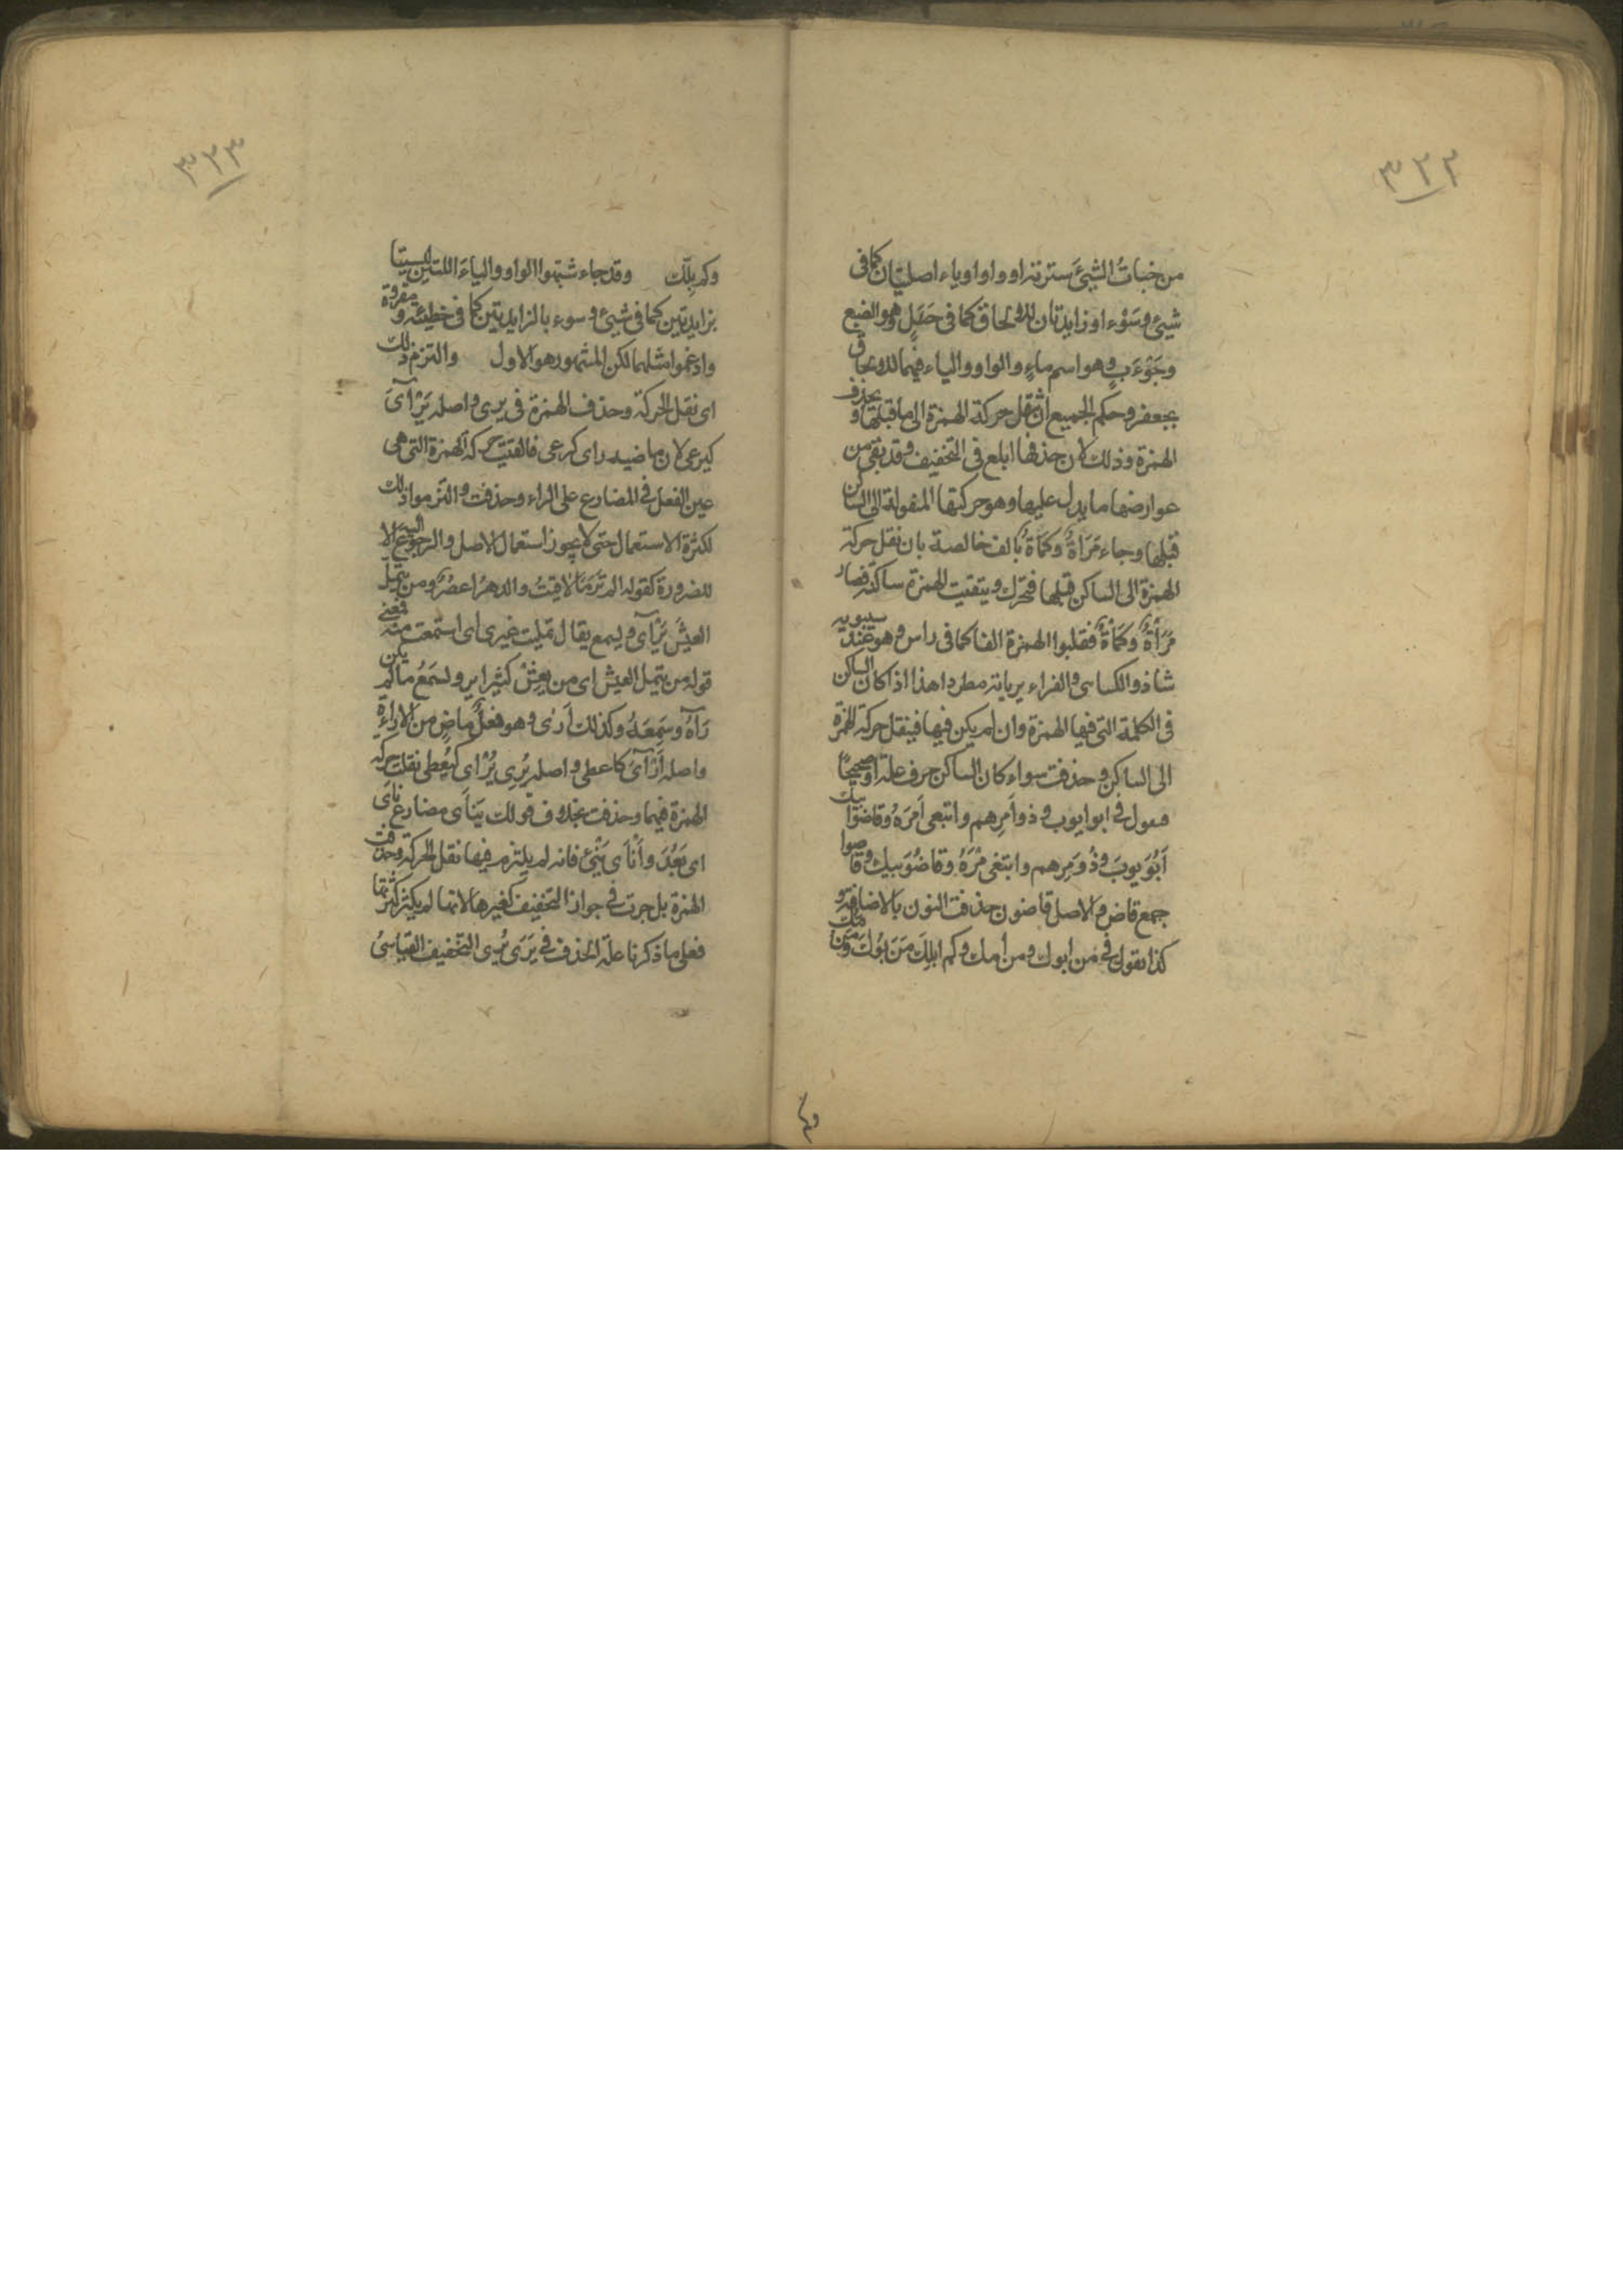 ٣٢٢
من خبأتُ الشیئَ سترته او واوا ویاء اصلیتان کما فی
شیئ وسَوْء او زایدتان للالحاق کما فی جَیْئَل وهو الضبع
وجَوْءَب وهو اسم ماءٍ والواو والیاء فیهما للالحاق
بجعفر وحکم الجمیع ان تنقل حرکة الهمزة الی ما قبلها وبحذف
الهمزة وذلک لان حذفها ابلغ فی التخفیف وقد بقی من
عوارضها ما یدل علیها وهو حرکتها المنقولة الی الساکن
قبلها وجاء مَرَاةٌ وکَمَاةٌ بالف خالصة بان نقل حرکة
الهمزة الی الساکن قبلها فتحرک وبقیت الهمزة ساکنة فصار
مَرَأْةٌ وکَمَأْةٌ فقلبوا الهمزة الفا کما فی راس وهو عند سیبویه
شاذ والکسائی والفراء یریانه مطردا هذا اذا کان الساکن
فی الکلمة التی فیها الهمزة وان لم یکن فیها فینقل حرکة الهمزة
الی الساکن وحذفت سواء کان الساکن حرف علة او صحیحًا
فیقول فی ابو ایوب وذو اَمرِهم وابتغی اَمرَهُ وقاضوا بیک
اَبُوَیوبَ وذُوَمرِهم وابتغی مْرَهُ وقاضُوَبیک وقاضوا
جمع قاض والاصل قاضون حذفت النون بالاضافة و
کذا یقول فی من ابوک ومن اُمک وکم ابلک مَنَ بُوکَ ومَنُ مّک
٣٢٣
وکمِ بِلک وقد جاء شبهوا الواو والیاءَ اللتین لیستا
بزایدتین کما فی شیئ وسوء بالزایدتین کما فی خطیئة ومقروة
وادغموا مثلهما لکن المشهور هو الاول والتزم ذلک
ای نقل الحرکة وحذف الهمزة فی یری واصله یَرْاَیُ
کیرعی لان ماضیه رای کرعی فالقیت حرکة الهمزة التی هی
عین الفعل فی المضارع علی الراء وحذفت والتزموا ذلک
لکثرة الاستعمال حتی لا یجوز استعمال الاصل والرجوعُ الیه الا
للضرورة کقوله الم تَرَ مَا لاقیتُ والدهرُ اعصُرٌ ومن یتملَّ
العیشَ یَرْأَی ویسمع یقال تملیت غیری ای استمعت منه فمعنی
قوله من یتمل العیش ای من یعِشْ کثیرا یر ویسمَعُ ما لم یکن
رَآهُ وسَمِعَهُ وکذلک اَرَی وهو فعلٌ ماضٍ من الاراءةِ
واصله اَرْأَیَ کاعطی واصله یُرِی یُرْإی کیُعطی نقلت حرکة
الهمزة فیهما وحذفت بخلاف قولک یَنأَی مضارع نَأَی
ای بَعُدَ وأَنْأَی یُنْئِ فانه لم یلتزم فیها نقل الحرکة وحذفت
الهمزة بل جرت فی جواز التخفیف کغیرها لانها لم یکثر کثرتها
فعلی ما ذکرنا علة الحذف فی یَرَی یُرِی التخفیف القیاسیُّ